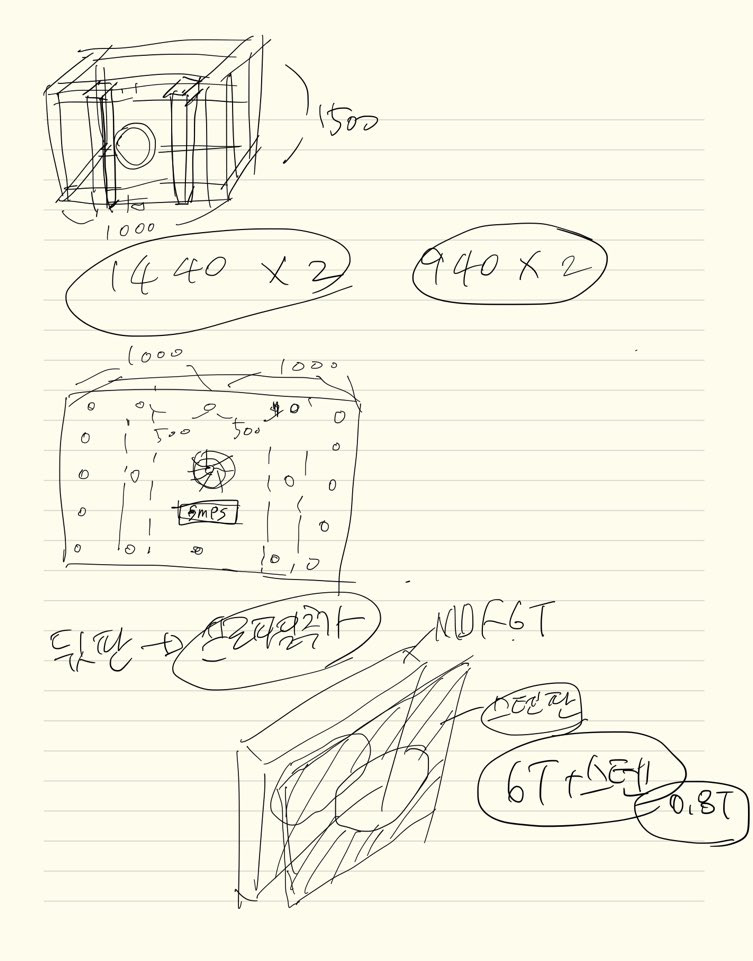 1500
1000
1440 X 2
940 X 2
1000
1000
500
500
SMPS
뒷판 → 프로파일추가
MDF 6T
스텐판
6T + 스텐
0.8T